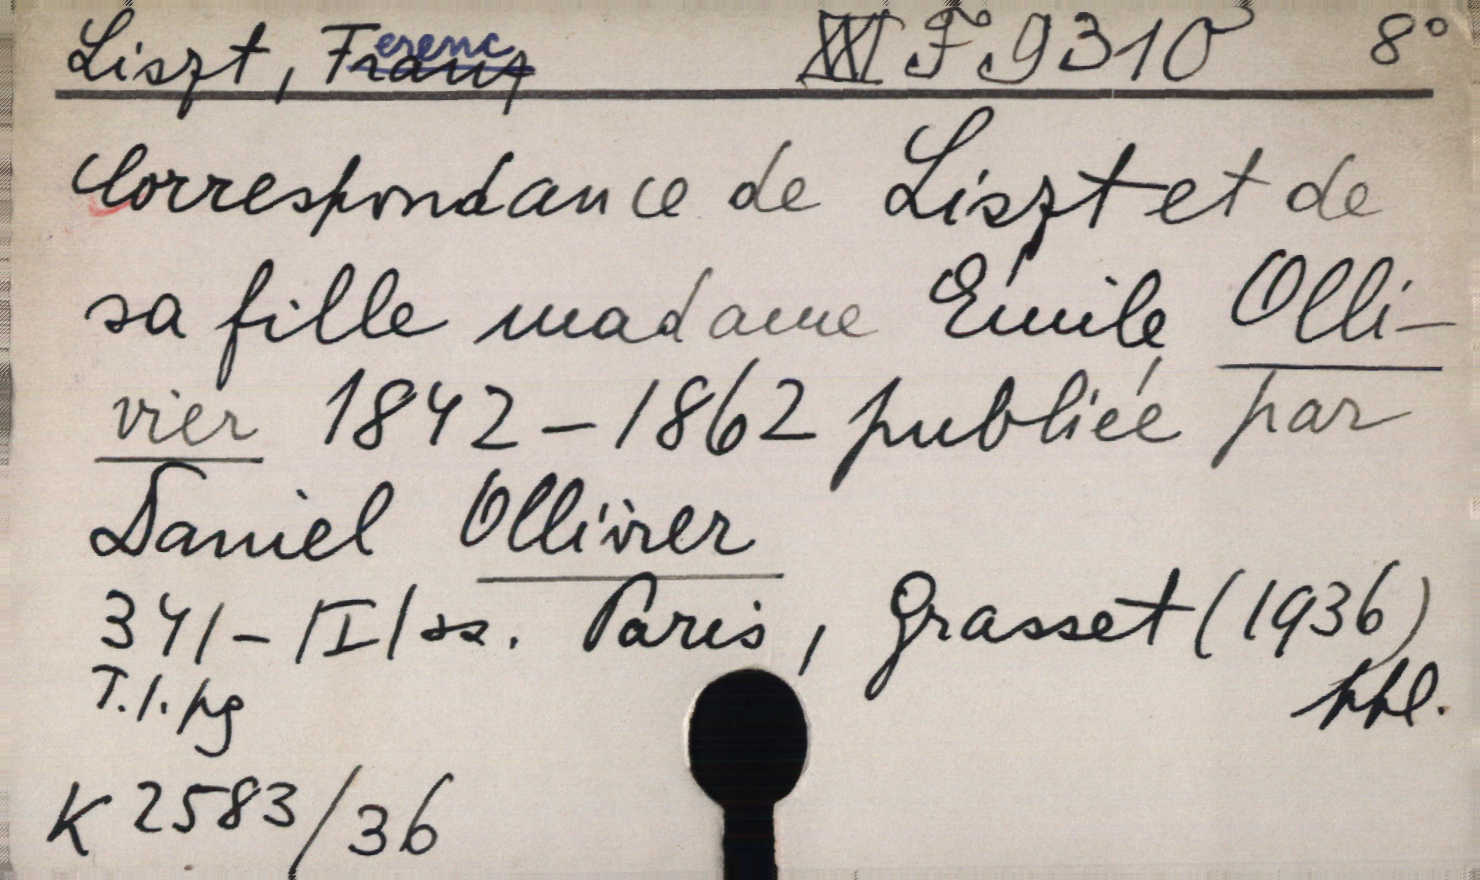 Liszt, Ferenc XXI F. 9310 8°
Correspondance de Liszt et de
sa fille madame Émile Olli-
vier 1842-1862 publiée par
Daniel Ollivier
341-/I/ ss. Paris, Grasset (1936)
T.1.pg ppl.
K 2583/36